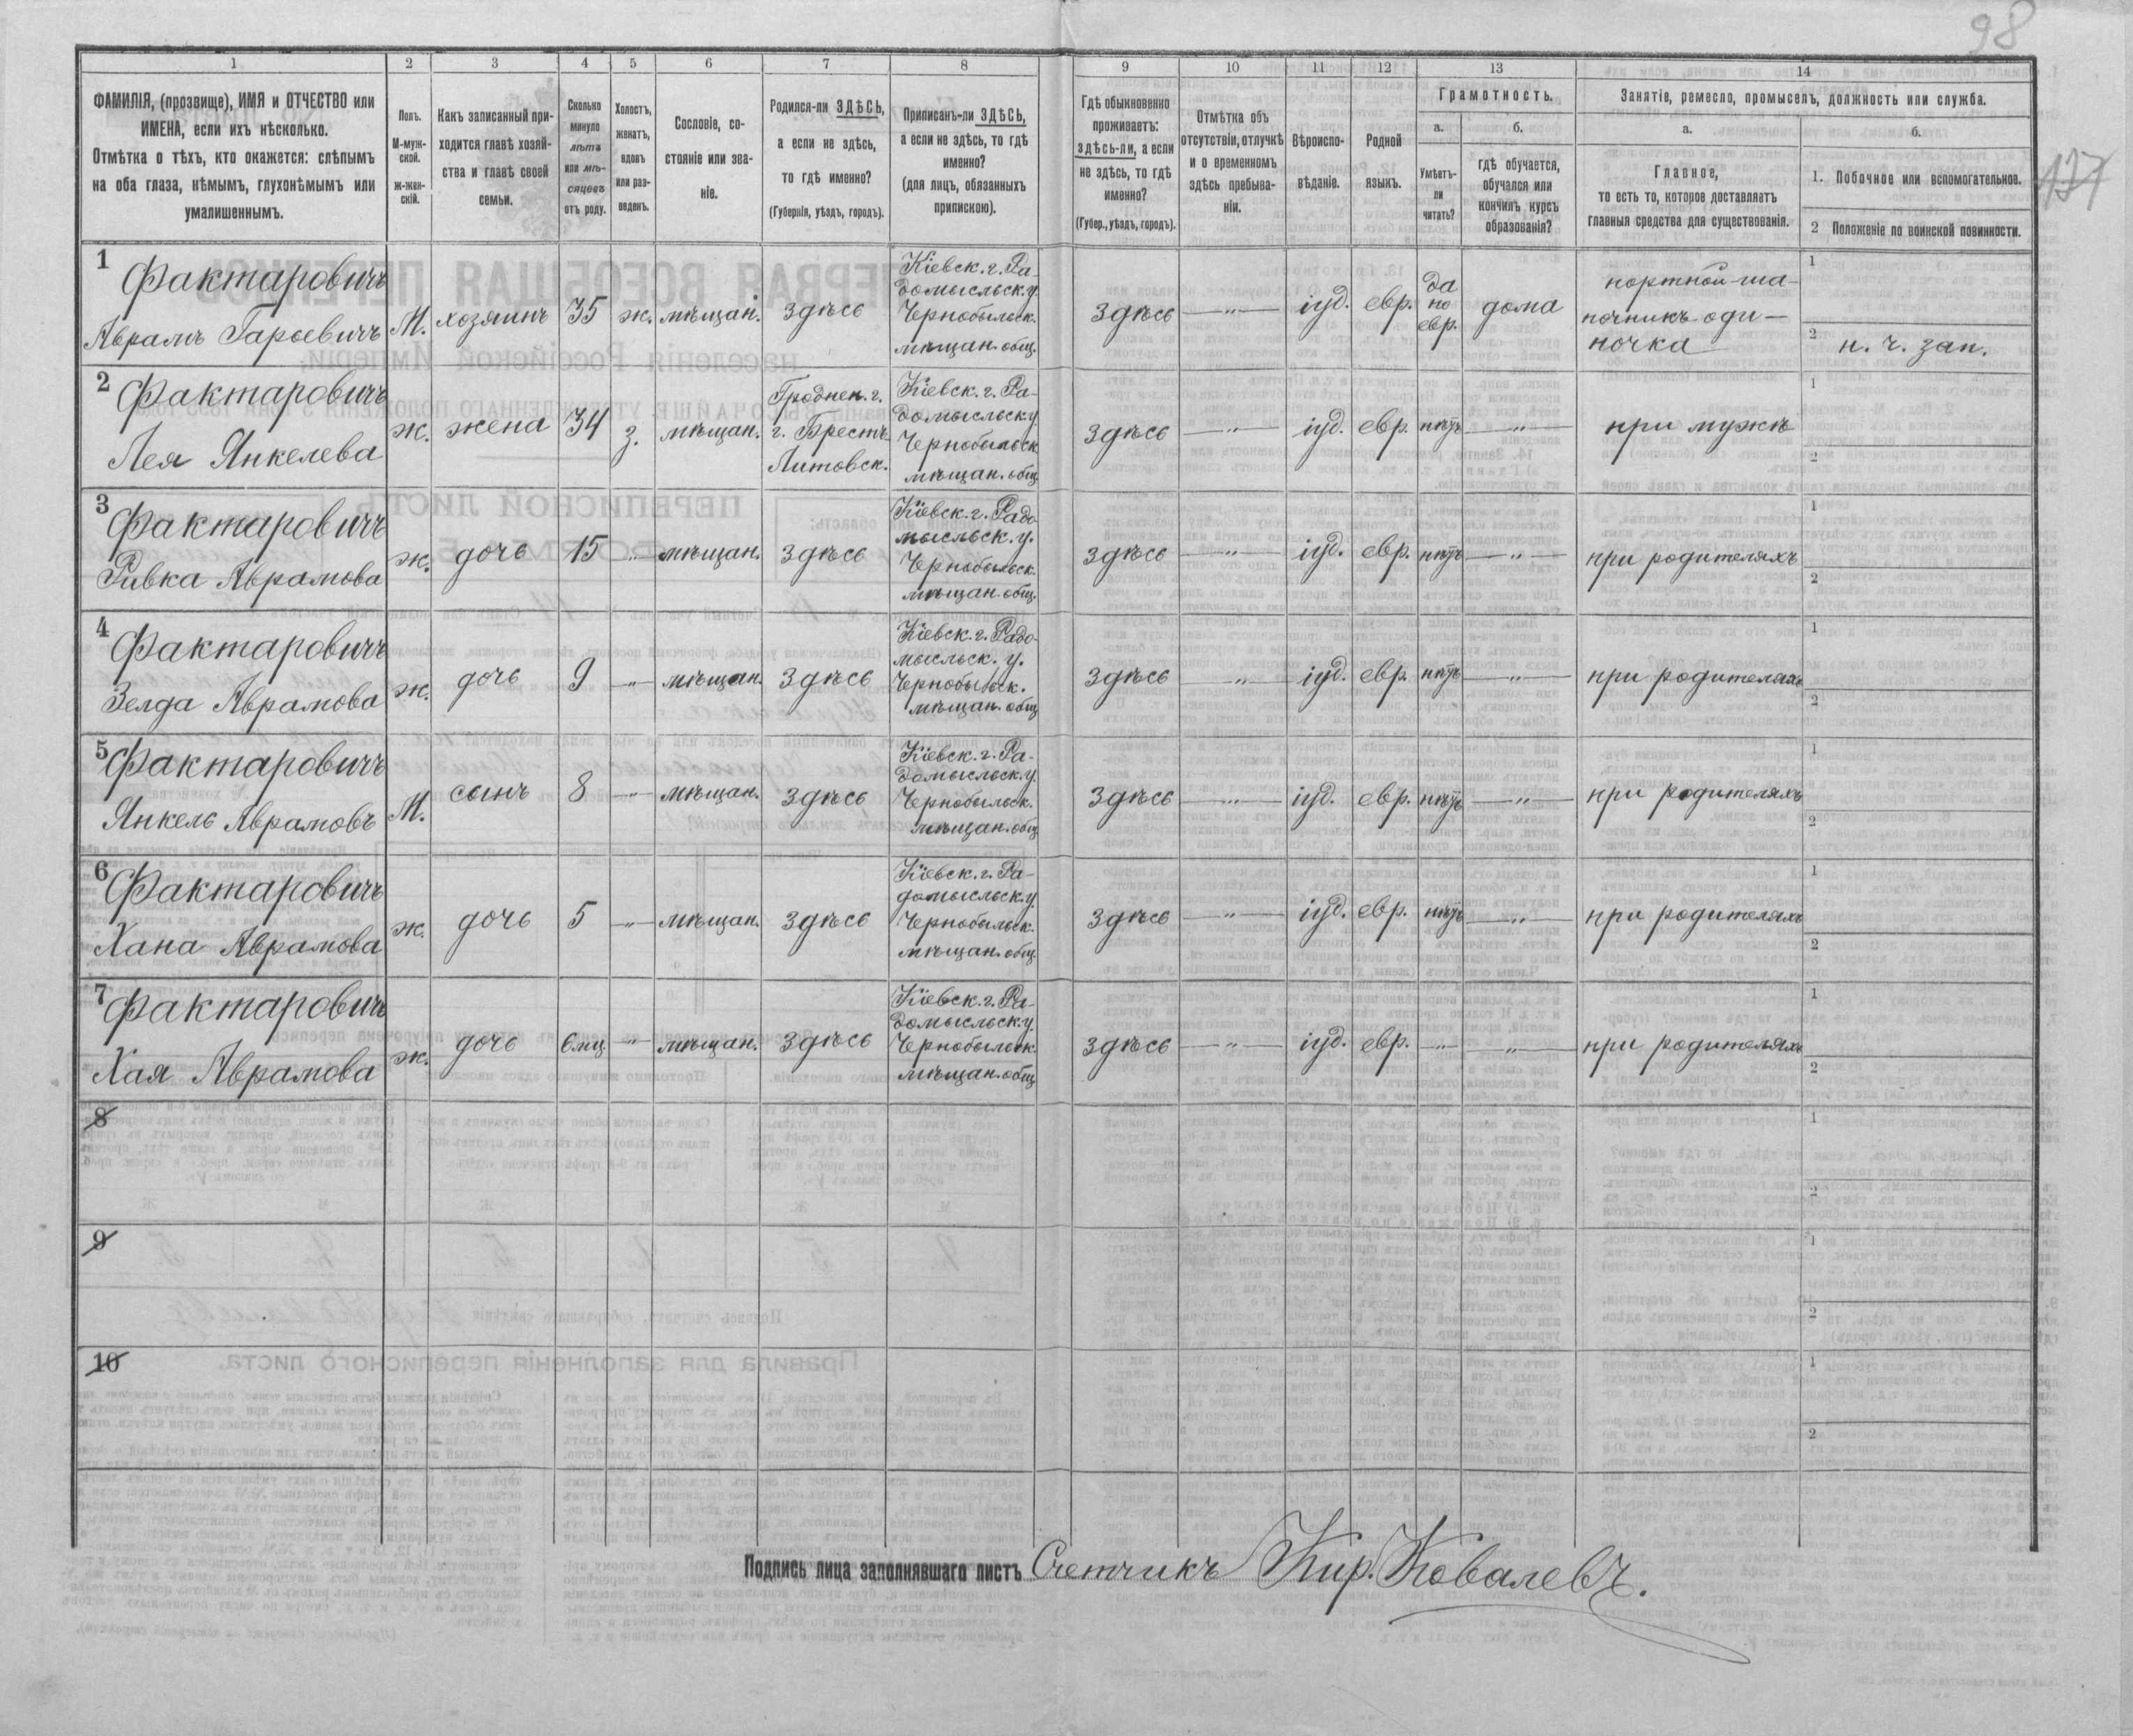 98
177
1
ФАМИЛІЯ, (прозвище), ИМЯ и ОТЧЕСТВО или
ИМЕНА, если ихъ нѣсколько.
Отмѣтка о тѣхъ, кто окажется: слѣпымъ
на оба глаза, нѣмымъ, глухонѣмымъ или
умалишеннымъ.
2
Полъ.
М-муж-
ской.
ж-жен-
скій.
3
Какъ записанный при-
ходится главѣ хозяй-
ства и главѣ своей
семьи.
4
Сколько
минуло
лѣтъ
или мѣ-
сяцевъ
отъ роду.
5
Холостъ,
женатъ,
вдовъ
или раз-
веденъ.
6
Сословіе, со-
стояніе или зва-
ніе.
7
Родился-ли ЗДѢСЬ,
а если не здѣсь,
то гдѣ именно?
(Губернія, уѣздъ, городъ).
8
Приписанъ-ли ЗДѢСЬ,
а если не здѣсь, то гдѣ
именно?
(для лицъ, обязанныхъ
припискою).
9
Гдѣ обыкновенно
проживаетъ:
здѣсь-ли, а если
не здѣсь, то гдѣ
именно?
(Губер., уѣздъ, городъ).
10
Отмѣтка объ
отсутствіи, отлучкѣ
и о временномъ
здѣсь пребыва-
ніи.
11
Вѣроиспо-
вѣданіе.
12
Родной
языкъ.
13
Грамотность.
а.
Умѣетъ-
ли
читать?
б.
гдѣ обучается,
обучался или
кончилъ курсъ
образованія?
14
Занятіе, ремесло, промыселъ, должность или служба.
а.
Главное,
то есть то, которое доставляетъ
главныя средства для существованія.
б.
1. Побочное или вспомогательное.
2 Положеніе по воинской повинности.
1
Фактаровичъ
Аврамъ Гароевичъ
М.
хозяинъ
35
ж.
мѣщан.
здѣсь
Кіевск. г. Ра-
домысльск. у.
Чернобыльск.
мѣщан. общ.
здѣсь
— „ —
іуд.
евр.
да
по
евр.
дома
портной ша-
почникъ оди-
ночка
1
2 н. ч. зап.
2
Фактаровичъ
Лея Янкелева
ж.
жена
34
з.
мѣщан.
Гроднен. г.
г. Брестъ-
Литовск.
Кіевск. г. Ра-
домысльск. у.
Чернобыльск.
мѣщан. общ.
здѣсь
— „ —
іуд.
евр.
нѣтъ
— „ —
при мужѣ
1
2
3
Фактаровичъ
Ривка Аврамова
ж.
дочь
15
— „ —
мѣщан.
здѣсь
Кіевск. г. Радо
мысльск. у.
Чернобыльск.
мѣщан. общ.
здѣсь
— „ —
іуд.
евр.
нѣтъ
— „ —
при родителяхъ
1
2
4
Фактаровичъ
Зелда Аврамова
ж.
дочь
9
— „ —
мѣщан.
здѣсь
Кіевск. г. Радо-
мысльск. у.
Чернобыльск.
мѣщан. общ
здѣсь
— „ —
іуд.
евр.
нѣтъ
— „ —
при родителяхъ
1
2
5
Фактаровичъ
Янкель Аврамовъ
М.
сынъ
8
— „ —
мѣщан.
здѣсь
Кіевск. г. Ра-
домысльск. у
Чернобыльск.
мѣщан. общ
здѣсь
— „ —
іуд.
евр.
нѣтъ
— „ —
при родителяхъ
1
2
6
Фактаровичъ
Хана Аврамова
ж.
дочь
5
— „ —
мѣщан.
здѣсь
Кіевск. г. Ра-
домысльск. у
Чернобыльск.
мѣщан. общ.
здѣсь
— „ —
іуд.
евр.
нѣтъ
— „ —
при родителяхъ
1
2
7
Фактаровичъ
Хая Аврамова
ж.
дочь
6 мц.
— „ —
мѣщан.
здѣсь
Кіевск. г. Ра-
домысльск. у.
Чернобыльск.
мѣщан. общ
здѣсь
— „ —
іуд.
евр.
— „ —
— „ —
при родителяхъ
1
2
8
1
2
9
1
2
10
1
2
Подпись лица заполнявшаго листъ Счетчикъ Кир. Ковалевъ.